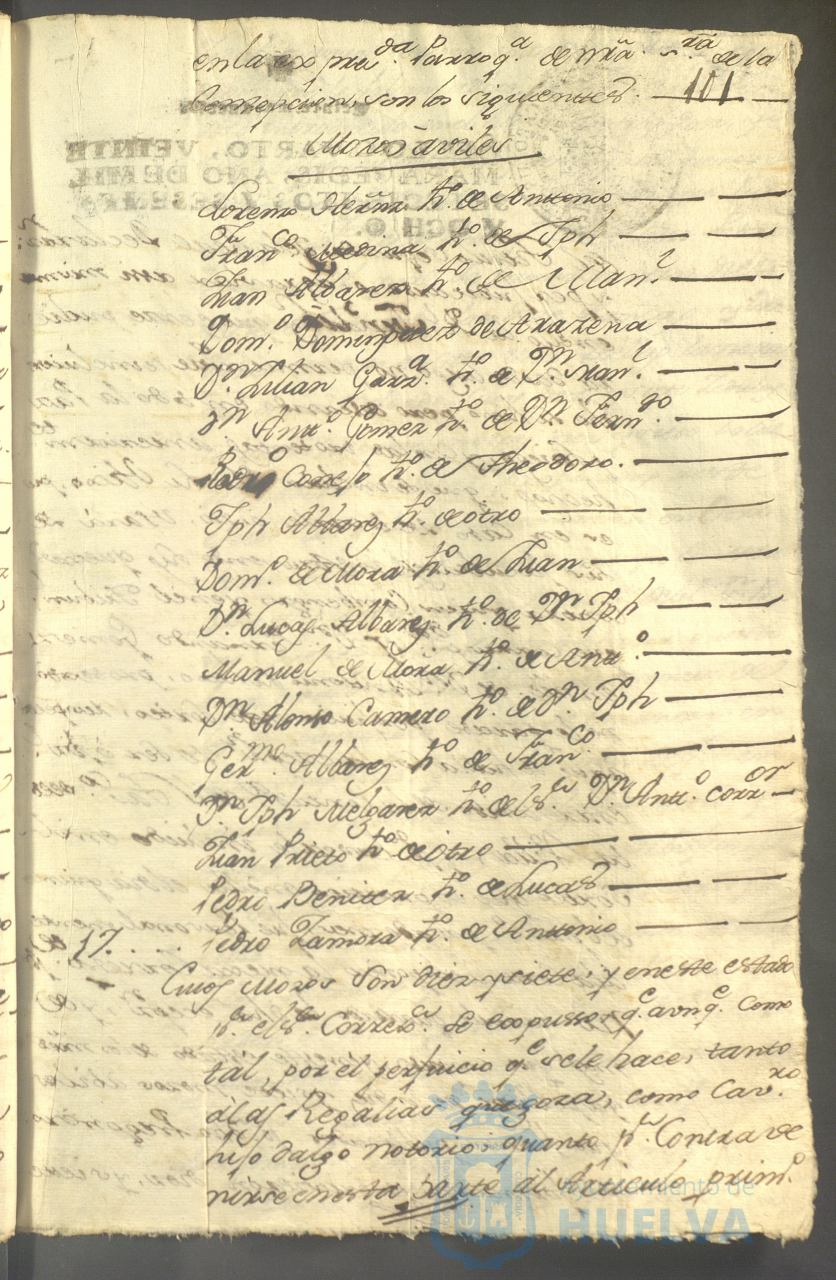 en la expre.da Parroq.a de nrã s.ra de la
Concepcion, son los siguienttes. 101
Mozos aviles
Lorenzo Hernz h.o de Anttonio
Fran.co Medina h.o de Jph
Juan Albarez h.o de Man.l
Dom.o Dominguez de Arazena
D.n Julian Garz.a h.o de D.n Man.l
D.n Ant.o Gomez h.o de D.n Fern.do
Pedro h.o de Theodoro.
Jph Albarez h.o de otro
Dom.o de Mora h.o de Juan
D.n Lucas Albarez h.o de D.n Jph
Manuel de Mora h.o de Ant.o
D.n Alonso Camero h.o de D.n Jph
Ger.mo Albarez h.o de Fran.co
D.n Jph Melgarez h.o del S.r D.n Ant.o Corr.or
Juan Prieto h.o de otro
Pedro Benitez h.o de Lucas
17. . . . Pedro Zamora h.o de Anttonio
Cuios Mozos son diez y siete, y en este estado
p.r el S.r Correx.r se expusso, q.e aunq.e como
tal, por el perjuicio q.e se le hace, tanto
a las Regalias que goza, como Cav.ro
hijo dalgo notorio, quanto p.r Contrave
nirse en esta parte al Articulo prim.o
Ayuntamiento de
HUELVA